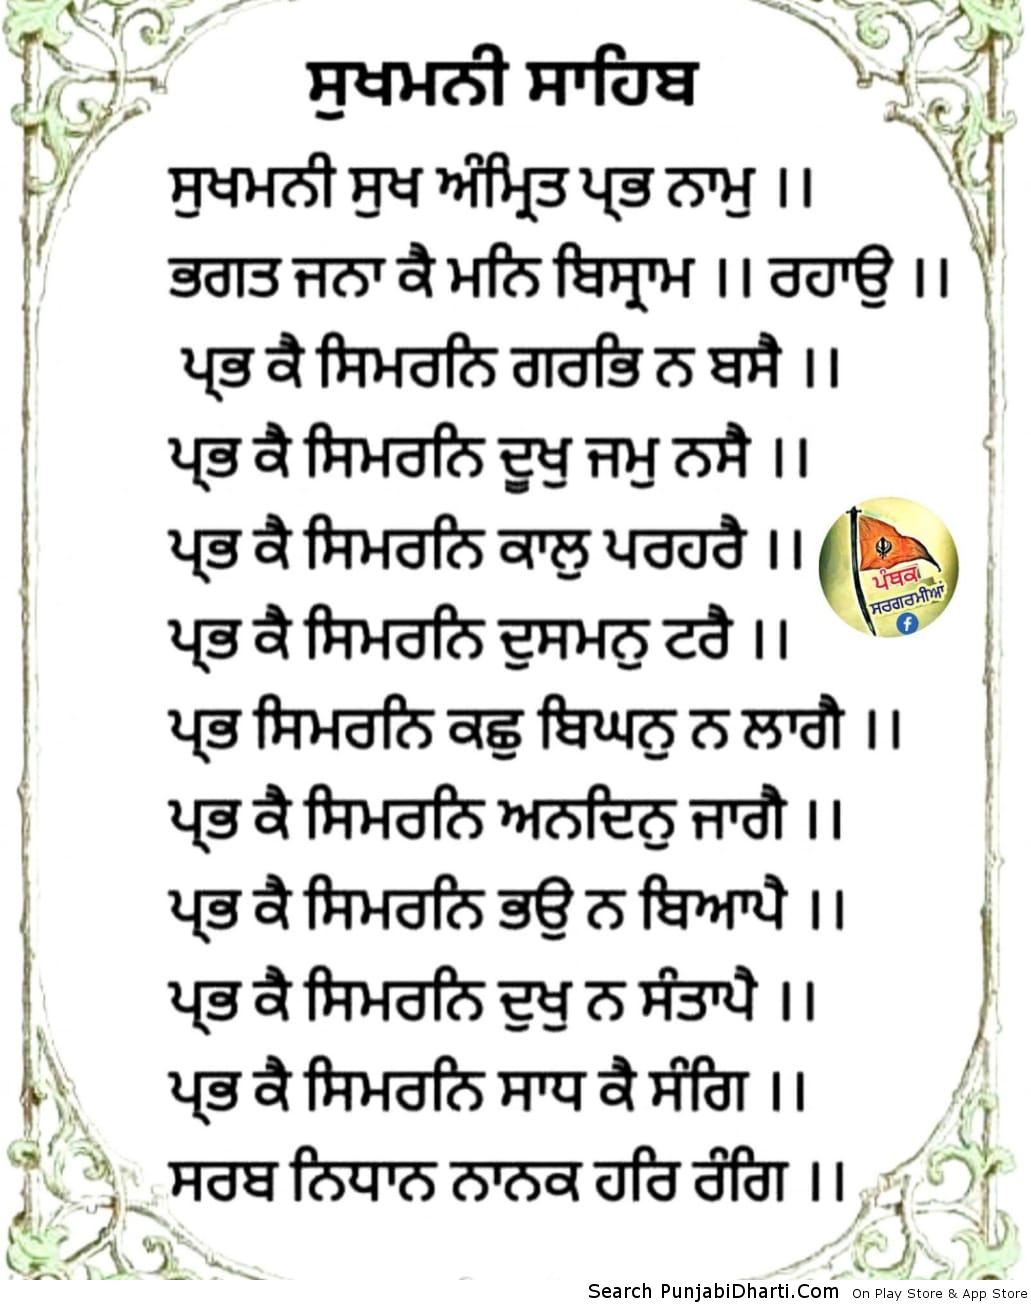 ਸੁਖਮਨੀ ਸਾਹਿਬ
ਸੁਖਮਨੀ ਸੁਖ ਅੰਮ੍ਰਿਤ ਪ੍ਰਭ ਨਾਮੁ ।।
ਭਗਤ ਜਨਾ ਕੈ ਮਨਿ ਬਿਸ੍ਰਾਮ ।। ਰਹਾਉ ।।
ਪ੍ਰਭ ਕੈ ਸਿਮਰਨਿ ਗਰਭਿ ਨ ਬਸੈ ।।
ਪ੍ਰਭ ਕੈ ਸਿਮਰਨਿ ਦੂਖੁ ਜਮੁ ਨਸੈ ।।
ਪ੍ਰਭ ਕੈ ਸਿਮਰਨਿ ਕਾਲੁ ਪਰਹਰੈ ।।
ਪੰਥਕ
ਸਰਗਰਮੀਆਂ
f
ਪ੍ਰਭ ਕੈ ਸਿਮਰਨਿ ਦੁਸਮਨੁ ਟਰੈ ।।
ਪ੍ਰਭ ਸਿਮਰਨਿ ਕਛੁ ਬਿਘਨੁ ਨ ਲਾਗੈ ।।
ਪ੍ਰਭ ਕੈ ਸਿਮਰਨਿ ਅਨਦਿਨੁ ਜਾਗੈ ।।
ਪ੍ਰਭ ਕੈ ਸਿਮਰਨਿ ਭਉ ਨ ਬਿਆਪੈ ।।
ਪ੍ਰਭ ਕੈ ਸਿਮਰਨਿ ਦੁਖੁ ਨ ਸੰਤਾਪੈ ।।
ਪ੍ਰਭ ਕੈ ਸਿਮਰਨਿ ਸਾਧ ਕੈ ਸੰਗਿ ।।
ਸਰਬ ਨਿਧਾਨ ਨਾਨਕ ਹਰਿ ਰੰਗਿ ।।
Search PunjabiDharti.Com On Play Store & App Store